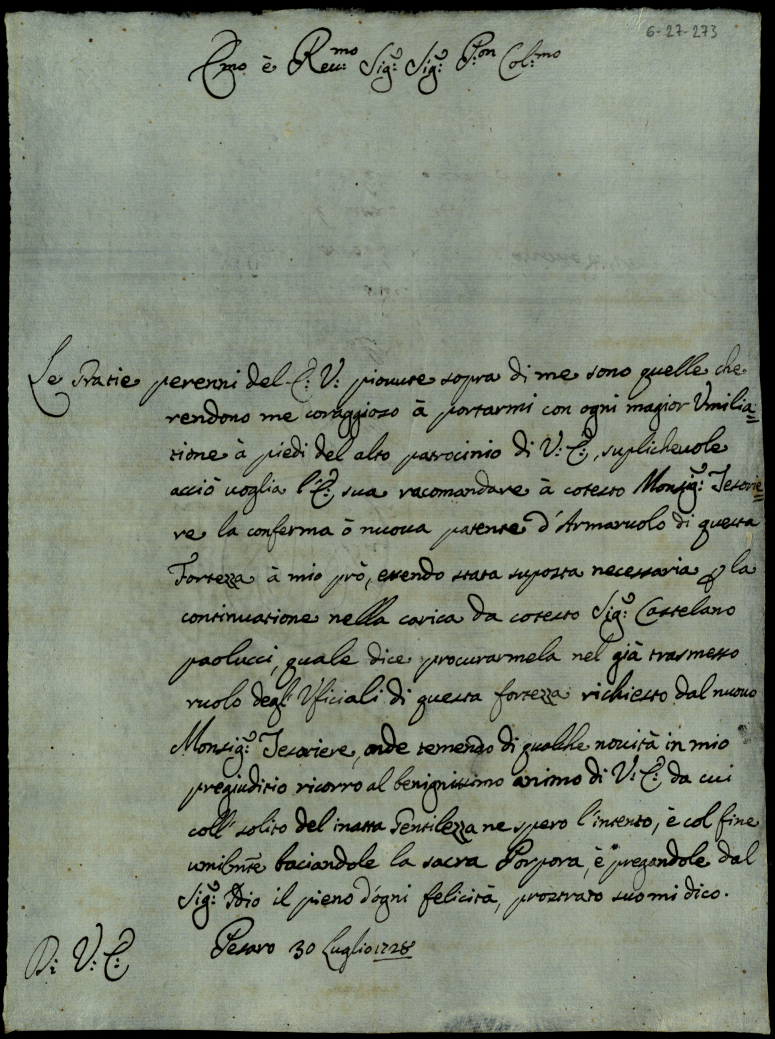 6-27-273
E.mo è Reu:mo Sig:r Sig:r P:ron Col:mo
Le Gratie perenni del E: V: piouute sopra di me sono quelle che
rendono me coraggioso à portarmi con ogni magior Vmilia=
tione à piedi del alto patrocinio di V: E:, suplicheuole
acciò uoglia l'E: sua racomandare à cotesto Monsig:r Tesorie=
re la conferma ò nuoua patente d'Armaruolo di questa
Fortezza à mio prò, essendo stata suposta necessaria p la
continuatione nella carica da cotesto Sig:r Castelano
paolucci, quale dice procurarmela nel già trasmesso
ruolo degl'Vficiali di questa fortezza richiesto dal nuouo
Monsig:r Tesoriere, onde temendo di qualche nouità in mio
pregiuditio ricorro al benignissimo animo di V: E: da cui
coll' solito del inatta Gentilezza ne spero l'intento, è col fine
umilm:te baciandole la sacra Porpora, è pregandole dal
Sig:r Idio il pieno d'ogni felicità, prostrato suo mi dico.
Pesaro 30 Luglio 1728
D: V: E: